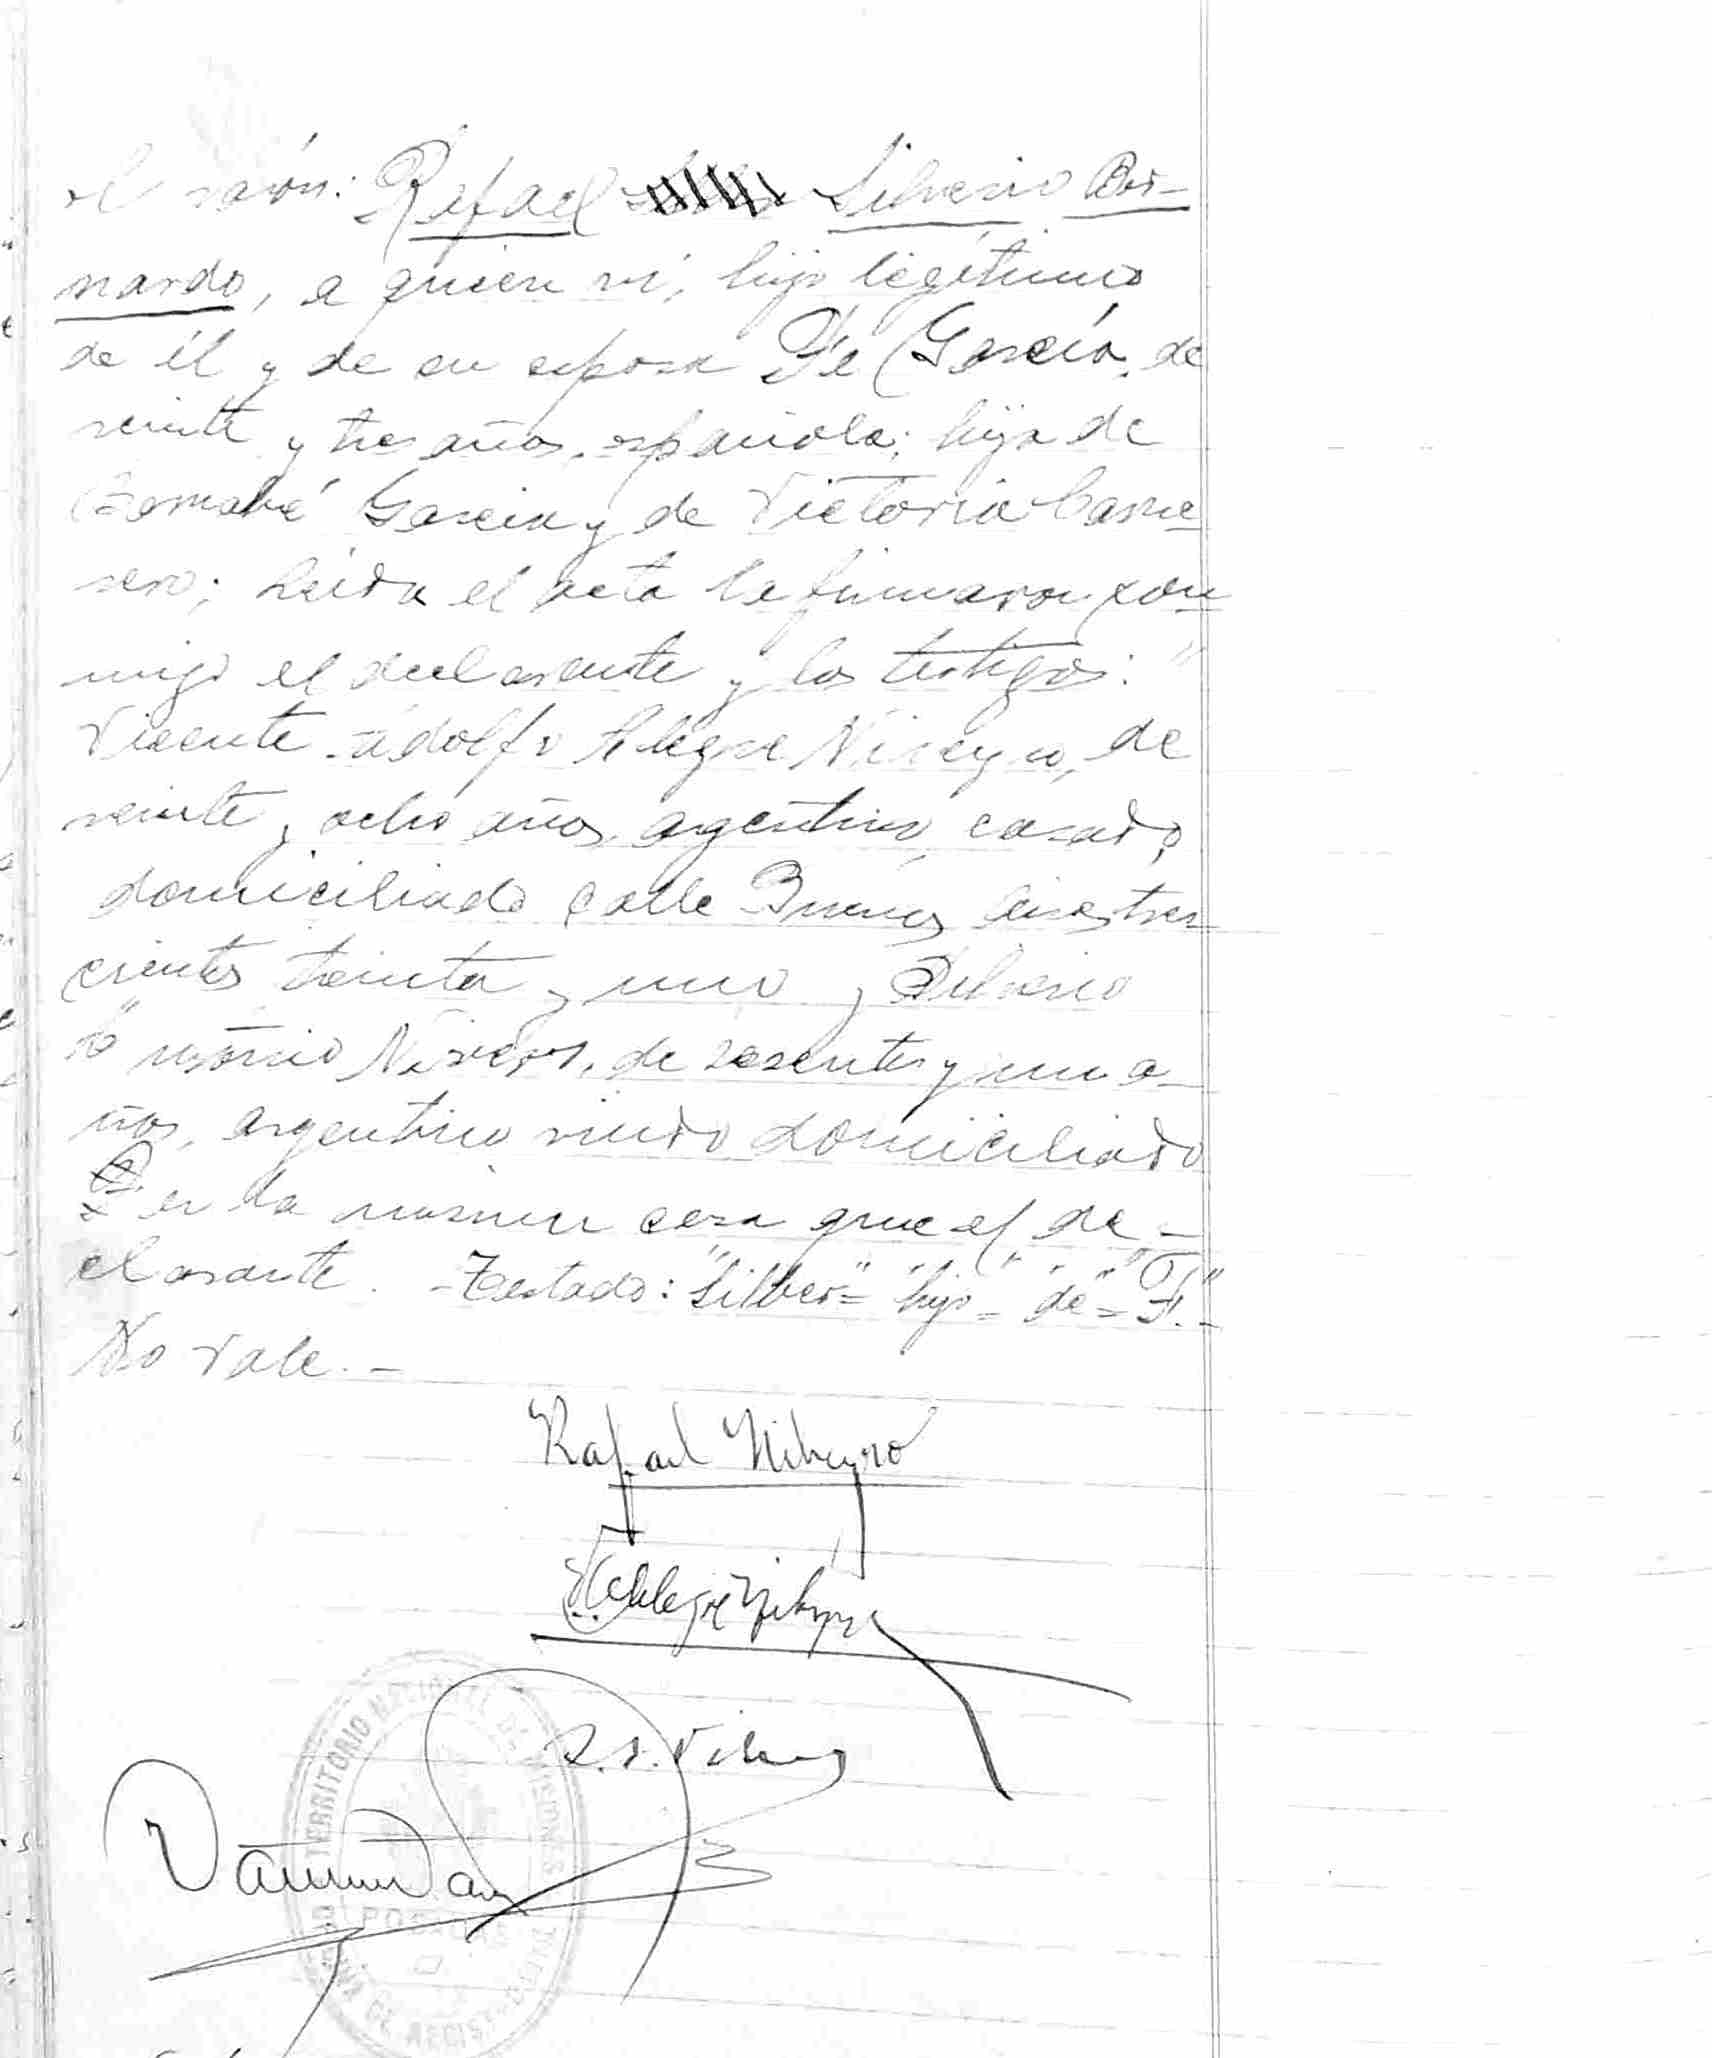 el varón: Rafael Silverio Ber-
nardo, a quien vi, hijo legítimo
de él y de su esposa Fe García, de
veinte y tres años, española; hija de
Bernabé García y de Victoria Carne
nero; Leída el acta la firmaron con
migo el declarante y los testigos:
Vicente Adolfo Alegre Niveyro, de
veinte y ocho años, argentino, casado,
domiciliado calle Buenos Aires tres
cientos treinta y uno y Silverio
de sesenta y un a-
ños, argentino viudo domiciliado
en la misma casa que el de-
clarante. - Testado: "Silver" = "hijo" = "de" = "F". -
No vale. -
Rafael Nibeyro
TERRITORIO NACIONAL DE MISIONES
POSADAS